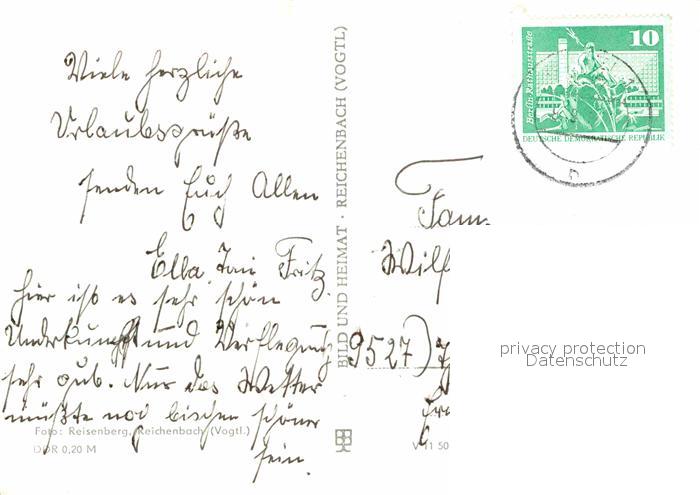 Viele herzliche
Urlaubsgrüße
senden Euch Allen
Ella Fritz.
hier ist es sehr schön
Underkumpft und Verflegung
sehr gub. Nur das Wetter
müßte noch bischen schöner
sein.
Foto: Reisenberg, Reichenbach (Vogtl.)
DDR 0,20 M
BILD UND HEIMAT · REICHENBACH (VOGTL)
V 11 50
10
Berlin, Rathausstraße
DEUTSCHE DEMOKRATISCHE REPUBLIK
Fam
Wilf
9527) 7
privacy protection
Datenschutz